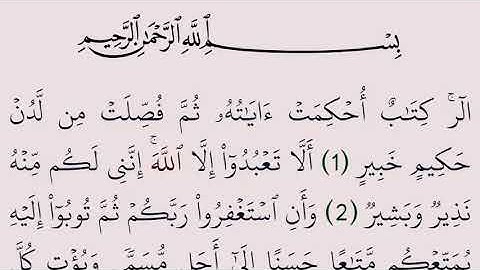 بِسْمِ اللَّهِ الرَّحْمَٰنِ الرَّحِيمِ
الٓرۚ كِتَٰبٌ أُحْكِمَتْ ءَايَٰتُهُۥ ثُمَّ فُصِّلَتْ مِن لَّدُنْ
حَكِيمٍ خَبِيرٍ (1) أَلَّا تَعْبُدُوٓا۟ إِلَّا ٱللَّهَۚ إِنَّنِى لَكُم مِّنْهُ
نَذِيرٌ وَبَشِيرٌ (2) وَأَنِ ٱسْتَغْفِرُوا۟ رَبَّكُمْ ثُمَّ تُوبُوٓا۟ إِلَيْهِ
يُمَتِّعْكُم مَّتَٰعًا حَسَنًا إِلَىٰٓ أَجَلٍ مُّسَمًّى وَيُؤْتِ كُلَّ